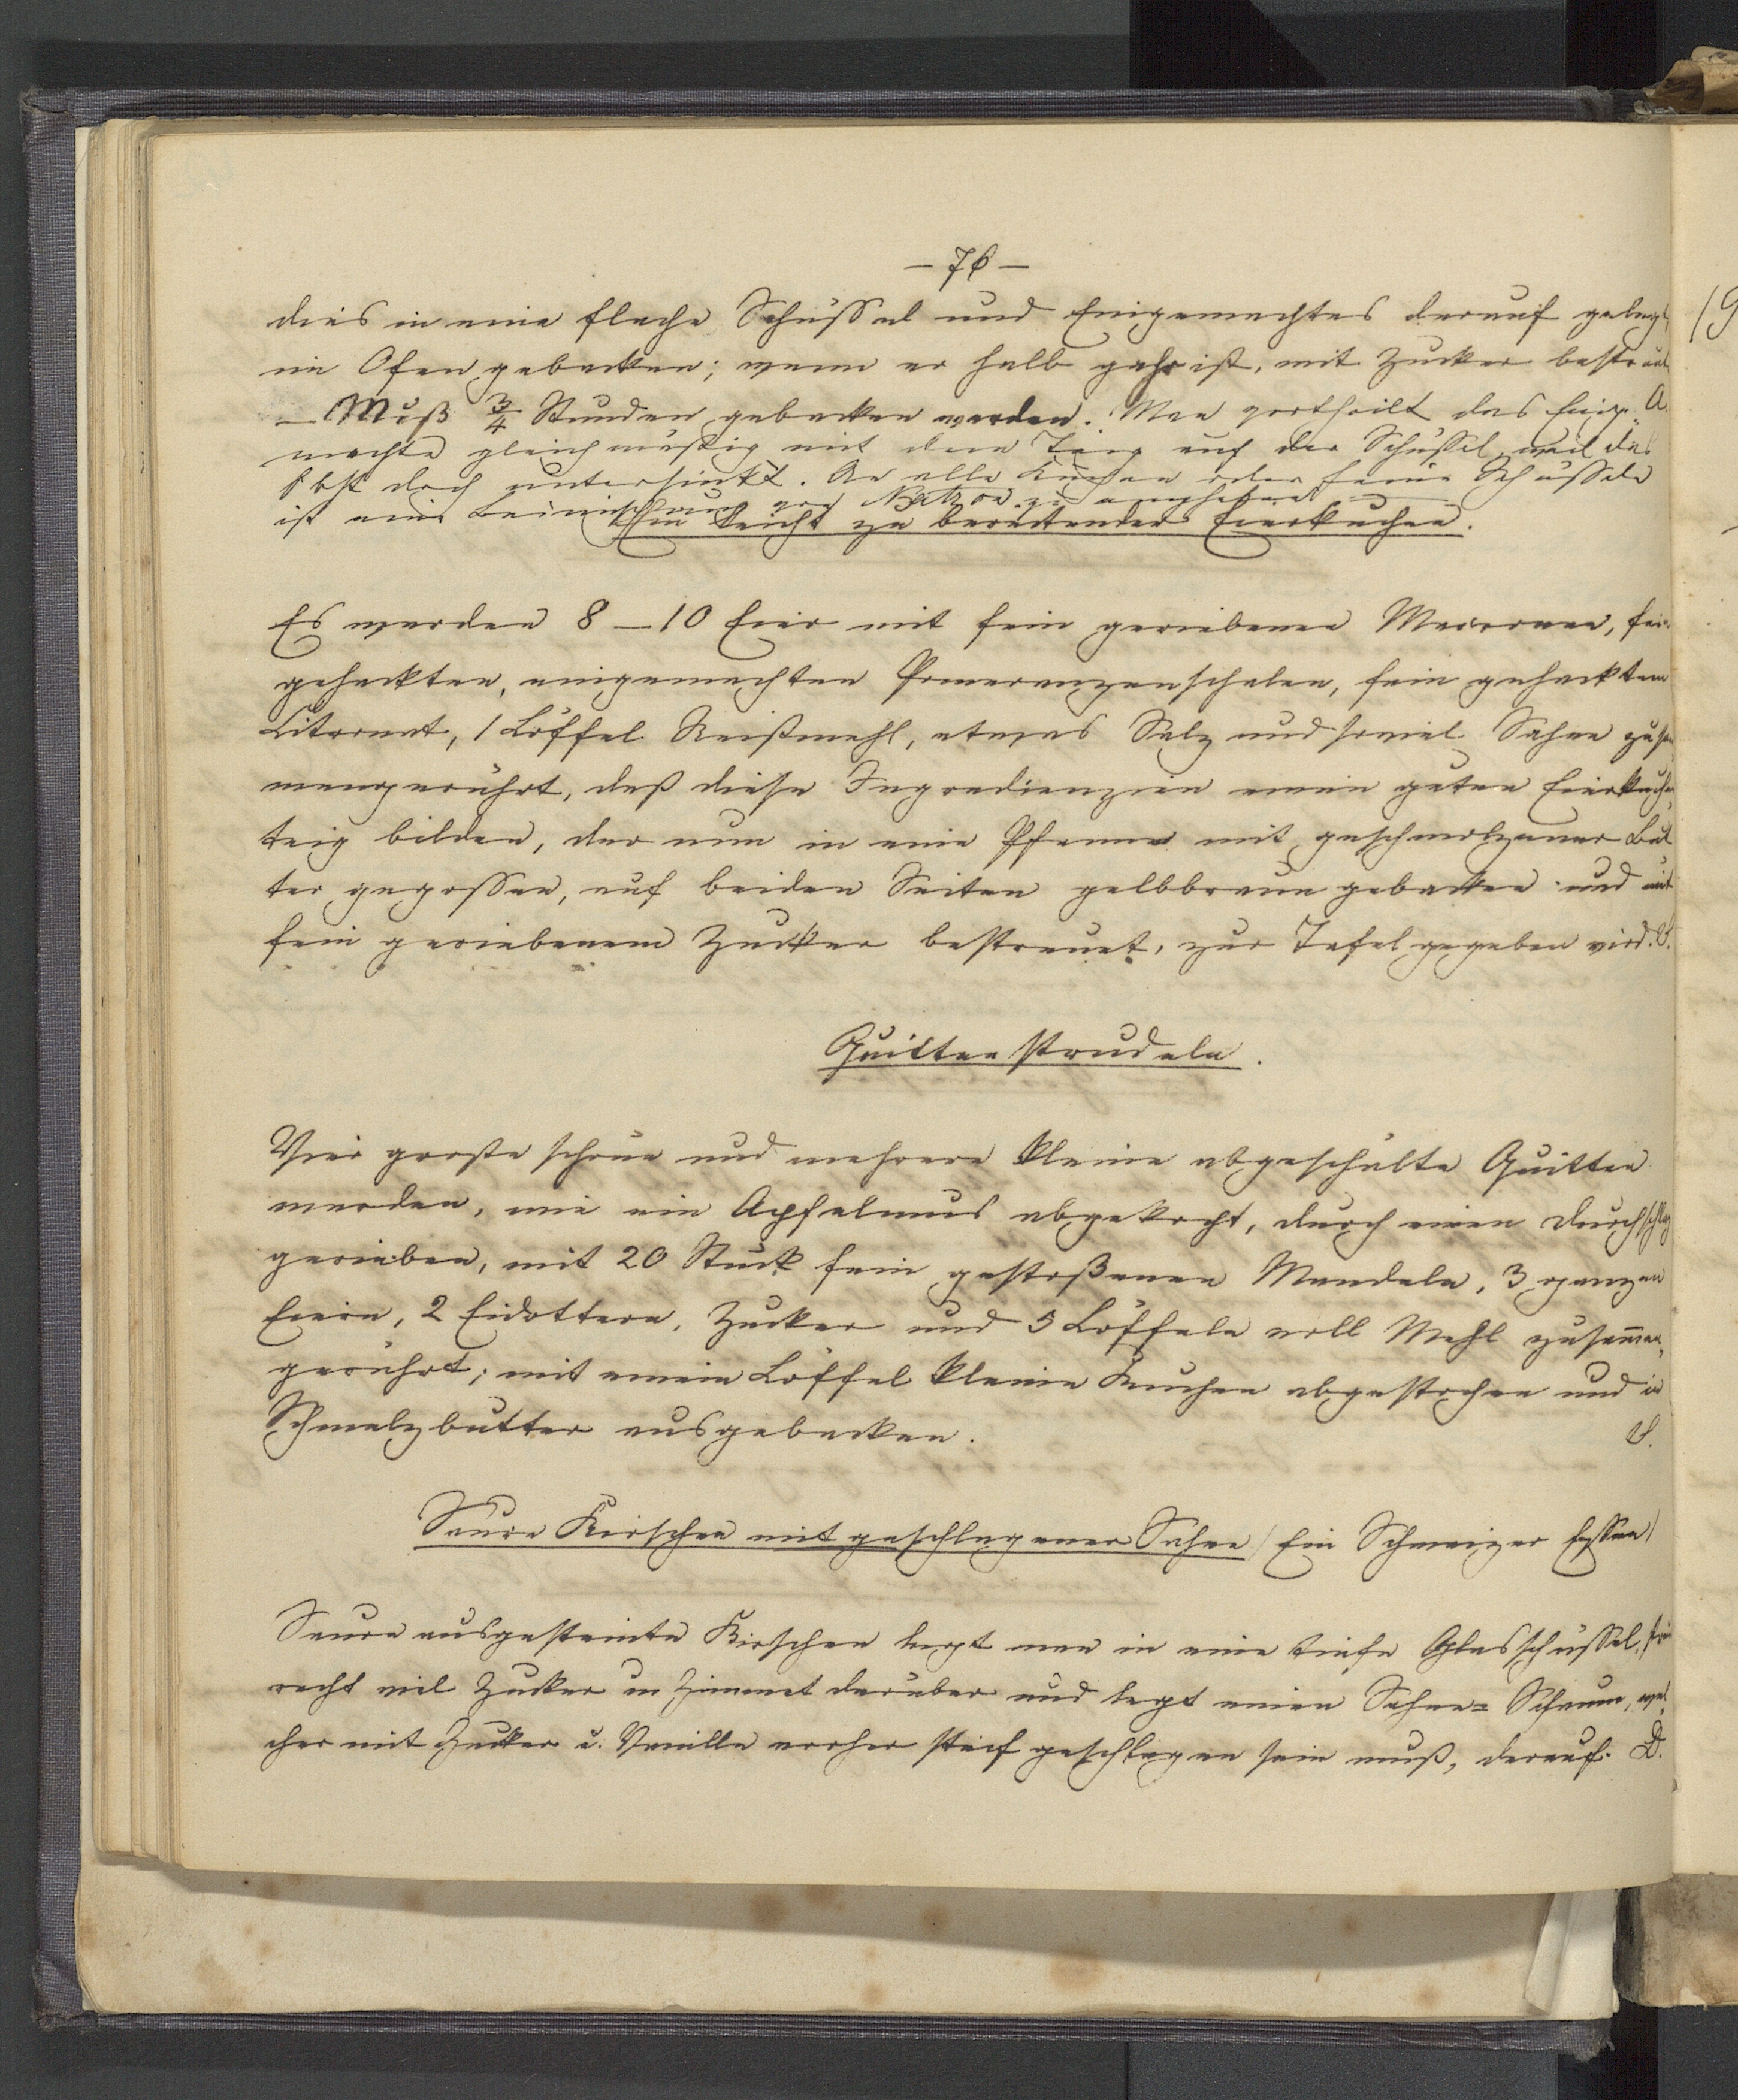 — 76 —
dies in eine flache Schüssel und Eingemachtes darauf gelegt
im Ofen gebacken; wenn er halb gahr ist, mit Zucker bestreut
— Muß 3/4 Stunden gebacken werden. Man vertheilt das Einge„ A.
machte gleichmäßig mit dem Teig auf der Schüssel, weil das
Obst doch untersinkt. An alle Kuchen oder feine Schüsseln
ist eine Beimischung von Natron zu empfehlen
Ein leicht zu bereitender Eierkuchen.
Es werden 8 — 10 Eier mit fein geriebenen Macronen, fein
gehackten, eingemachten Pomeranzenschalen, fein gehacktem
Citronat, 1 Löffel Reißmehl, etwas Salz und soviel Sahne zusam
mengerührt, daß diese Ingredienzien einen guten Eierkuchen„
teig bilden, der nun in eine Pfanne mit geschmolzener But
ter gegossen, auf beiden Seiten gelbbraun gebacken und mit
fein geriebenem Zucker bestreuet, zur Tafel gegeben wird. S.
Quittenstrudeln.
Vier große schöne und mehrere kleine abgeschälte Quitten
werden, wie ein Apfelmus abgekocht, durch einen Durchschlag
gerieben, mit 20 Stück fein gestoßenen Mandeln, 3 ganzen
Eiern, 2 Eidottern, Zucker und 5 Löffeln voll Mehl zusammen„
gerührt; mit einem Löffel kleine Kuchen abgestochen und in
Schmelzbutter ausgebacken. S.
Saure Kirschen mit geschlagener Sahne / Ein Schweizer Essen /
Saure ausgesteinte Kirschen legt man in eine tiefe Glasschüssel, streut
recht viel Zucker u Zimmet darüber und legt einen Sahne= Schaum, wel
cher mit Zucker u. Vanille vorher steif geschlagen sein muß, darauf. D.